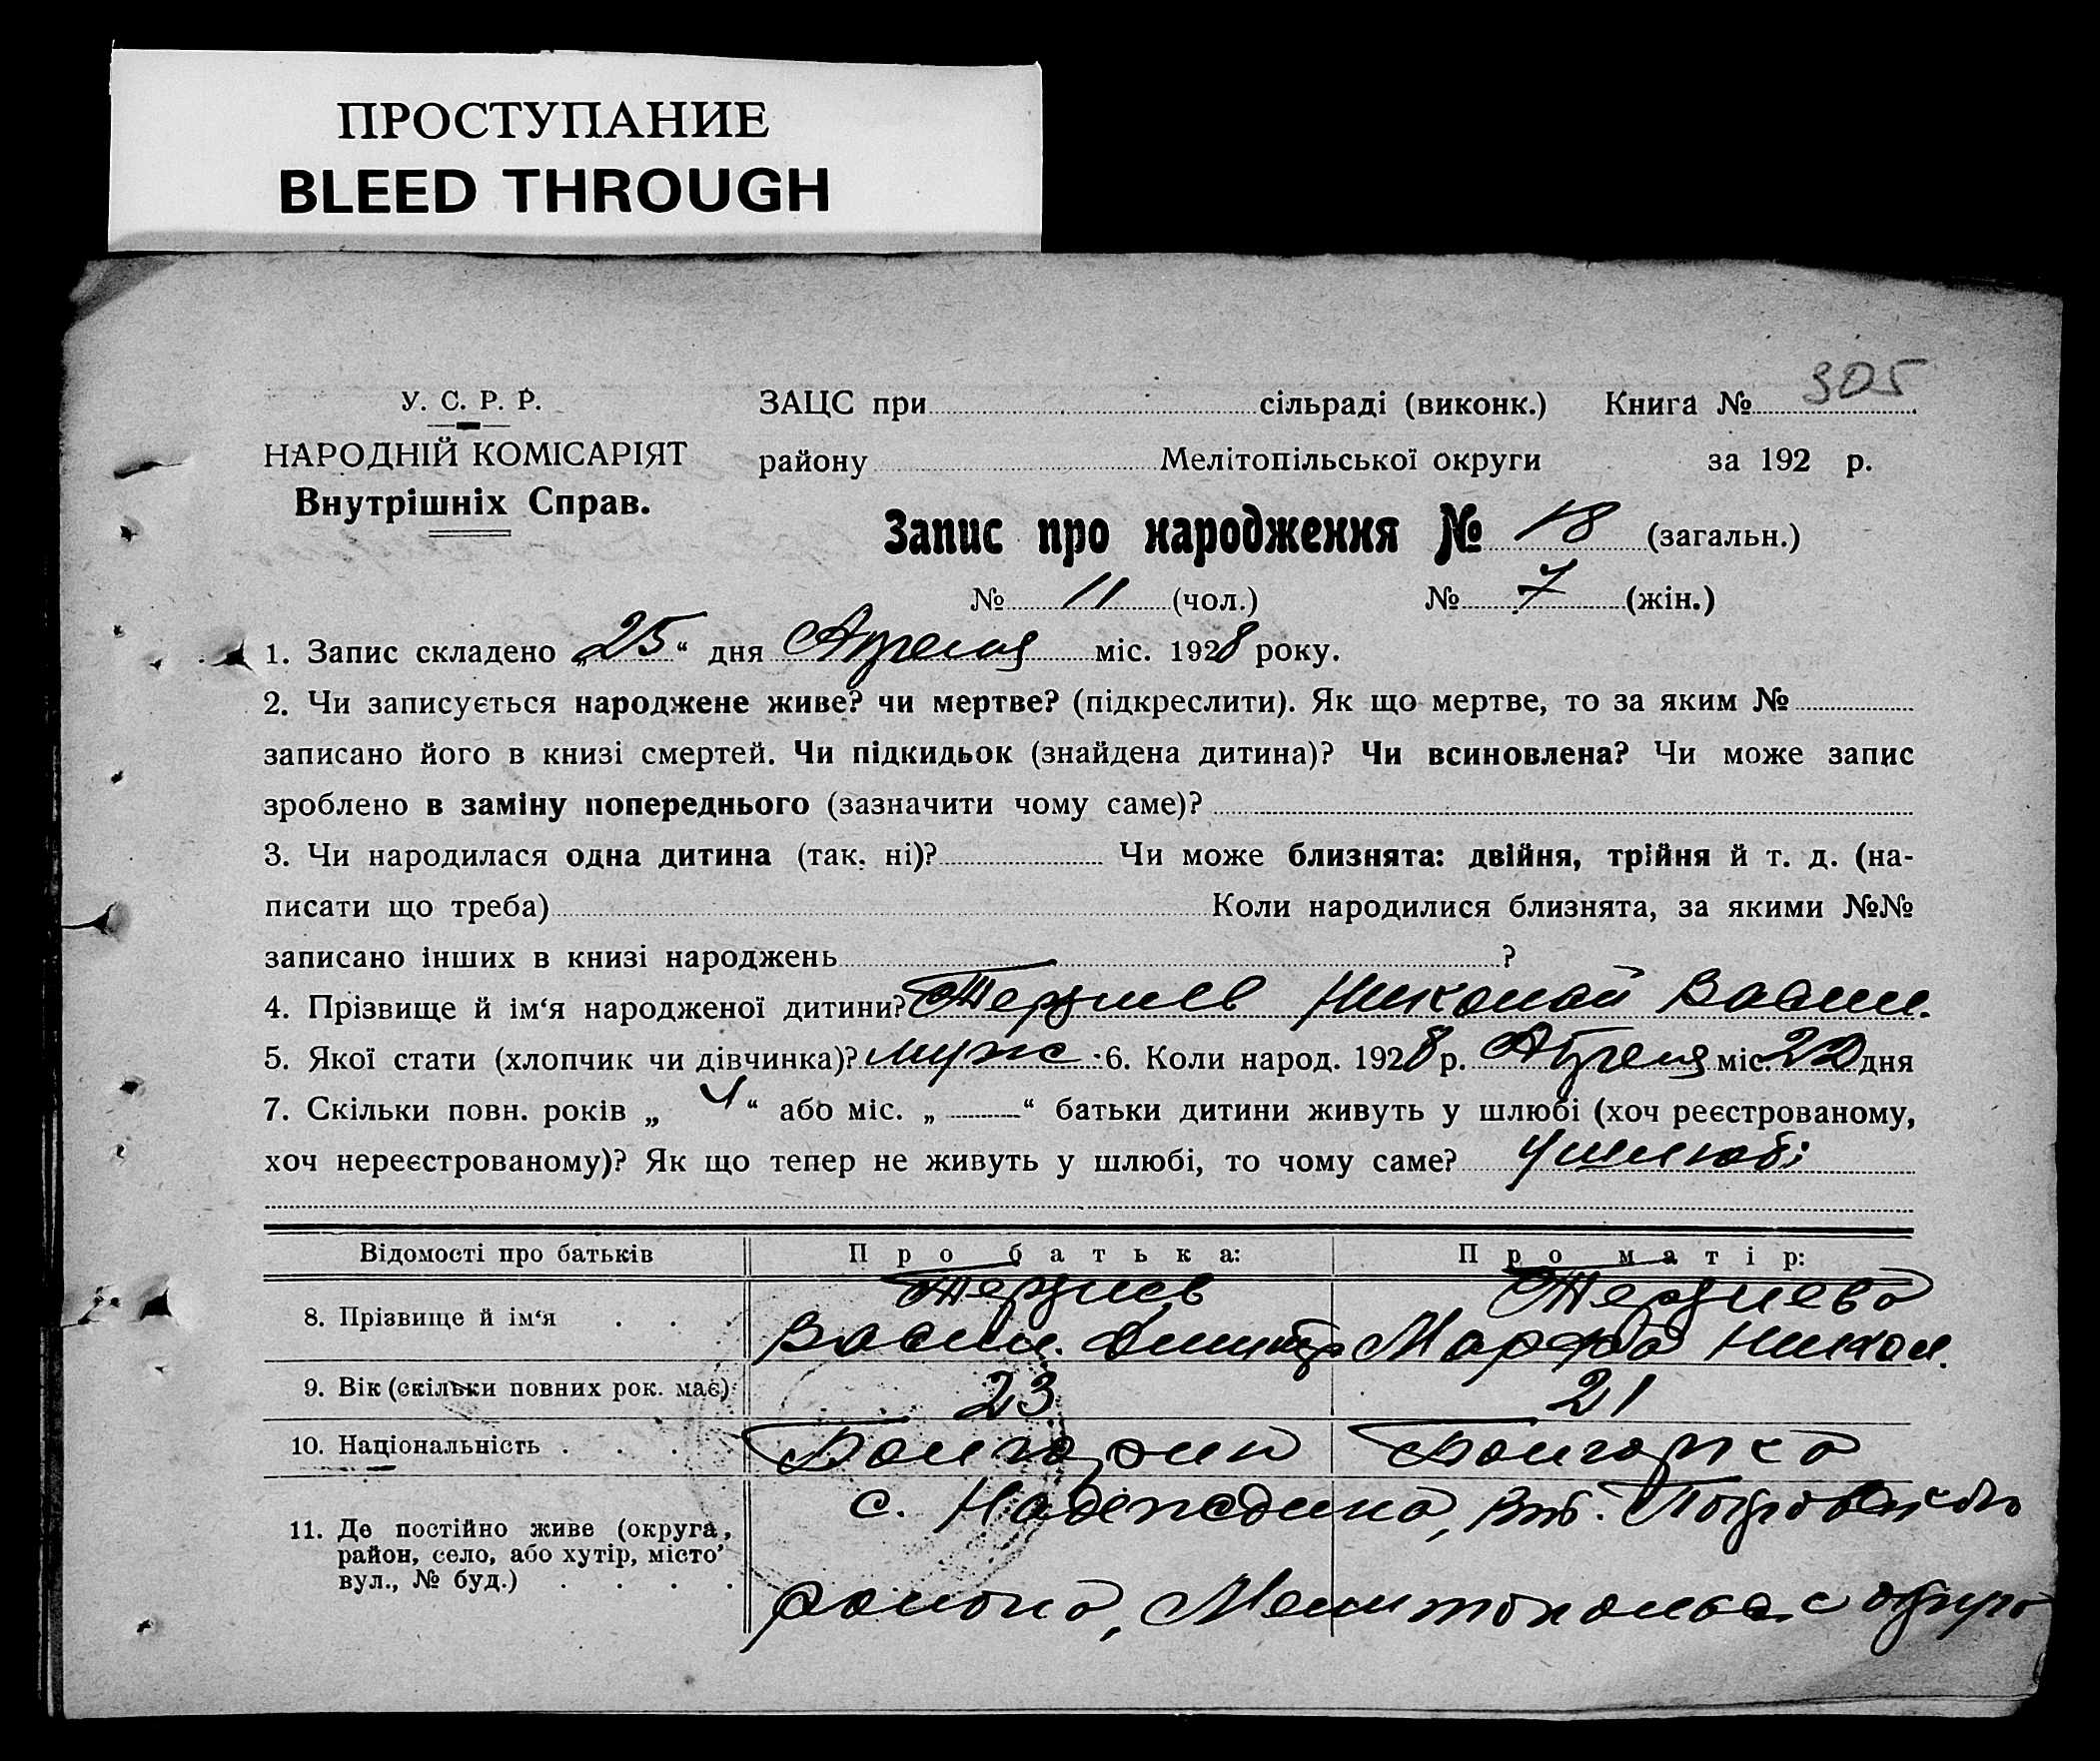 ПРОСТУПАНИЕ
BLEED THROUGH
305
У. С. Р. Р.
НАРОДНІЙ КОМІСАРІЯТ
Внутрішніх Справ.
ЗАЦС при сільраді (виконк.) Книга №
району Мелітопільської округи за 192 р.
Запис про народження № 18 (загальн.)
№ 11 (чол.) № 7 (жін.)
1. Запис складено „25“ дня Апреля міс. 1928 року.
2. Чи записується народжене живе? чи мертве? (підкреслити). Як що мертве, то за яким №
записано його в книзі смертей. Чи підкидьок (знайдена дитина)? Чи всиновлена? Чи може запис
зроблено в заміну попереднього (зазначити чому саме)?
3. Чи народилася одна дитина (так. ні)? Чи може близнята: двійня, трійня й т. д. (на-
писати що треба) Коли народилися близнята, за якими №№
записано інших в книзі народжень ?
4. Прізвище й ім‘я народженої дитини? Терзиев Николай Васил.
5. Якої стати (хлопчик чи дівчинка)? муж 6. Коли народ. 1928 р. Апреля міс. 22 дня
7. Скільки повн. років „ 4 “ або міс. „ — “ батьки дитини живуть у шлюбі (хоч реєстрованому,
хоч нереєстрованому)? Як що тепер не живуть у шлюбі, то чому саме? У шлюбі
Відомості про батьків Про батька: Про матір:
8. Прізвище й ім‘я . . . Терзиев Васил. Димитр Терзиева Марфа Никол.
9. Вік (скільки повних рок. має) 23 21
10. Національність . . . Болгарин Болгарка
11. Де постійно живе (округа, район, село, або хутір, місто вул., № буд.) . . . .
с. Надеждина, Покровского
района, Мелитопольс округа